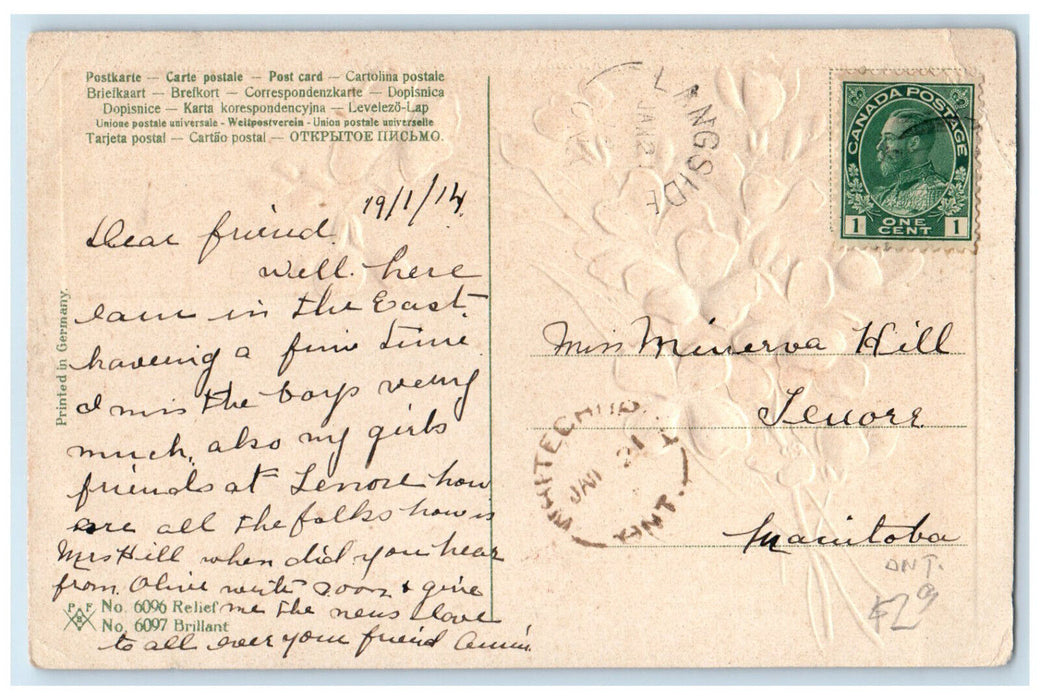 Postkarte — Carte postale — Post card — Cartolina postale
Briefkaart — Brefkort — Correspondenzkarte — Dopisnica
Dopisnice — Karta korespondencyjna — Levelező-Lap
Unione postale universale - Weltpostverein - Union postale universelle
Tarjeta postal — Cartão postal — ОТКРЫТОЕ ПИСЬМО.
19/1/14
Dear friend.
well. here
I am in the East.
haveing a fine time
I miss the boys very
much, also my girls
friends at Lenore how
are all the folks how is
Mrs Hill when did you hear
from Olive write soon & give
me the news love
to all ever your friend
Printed in Germany.
P F B
No. 6096 Relief
No. 6097 Brillant
LANGSIDE
JAN 21
CANADA POSTAGE
1 ONE CENT 1
Miss Minerva Hill
Lenore
Manitoba
WHITECHURCH
JAN 21
ONT.
ONT.